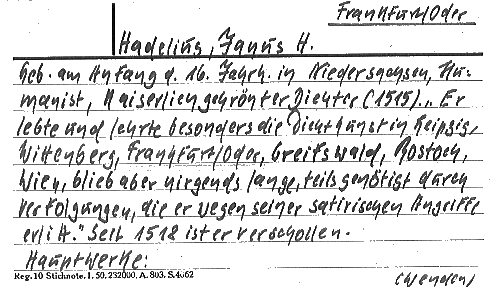 Frankfurt/Oder
Hadelius, Janus H.
Geb. am Anfang d. 16. Jahrh. in Niedersachsen, Hu-
manist, Kaiserlich gekrönter Dichter (1515). „Er
lebte und lehrte besonders die Dichtkunst in Leipzig,
Wittenberg, Frankfurt/Oder, Greifswald, Rostock,
Wien, blieb aber nirgends lange, teils genötigt durch
Verfolgungen, die er wegen seiner satirischen Angriffe
erlitt." Seit 1518 ist er verschollen.
Hauptwerke:
Reg. 10 Stichnote. I. 50, 232000, A. 803. S. 4662
(wenden)